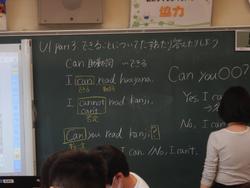 協力
U1 part3 できることについてたずねたり答えたりしよう
Can 助動詞 〜できる
I can read hiragana.
I cannot read kanji.
can't
否定
Can you read kanji?
I can. //No, I can't.
Can you〇〇?
Yes, I
No, I